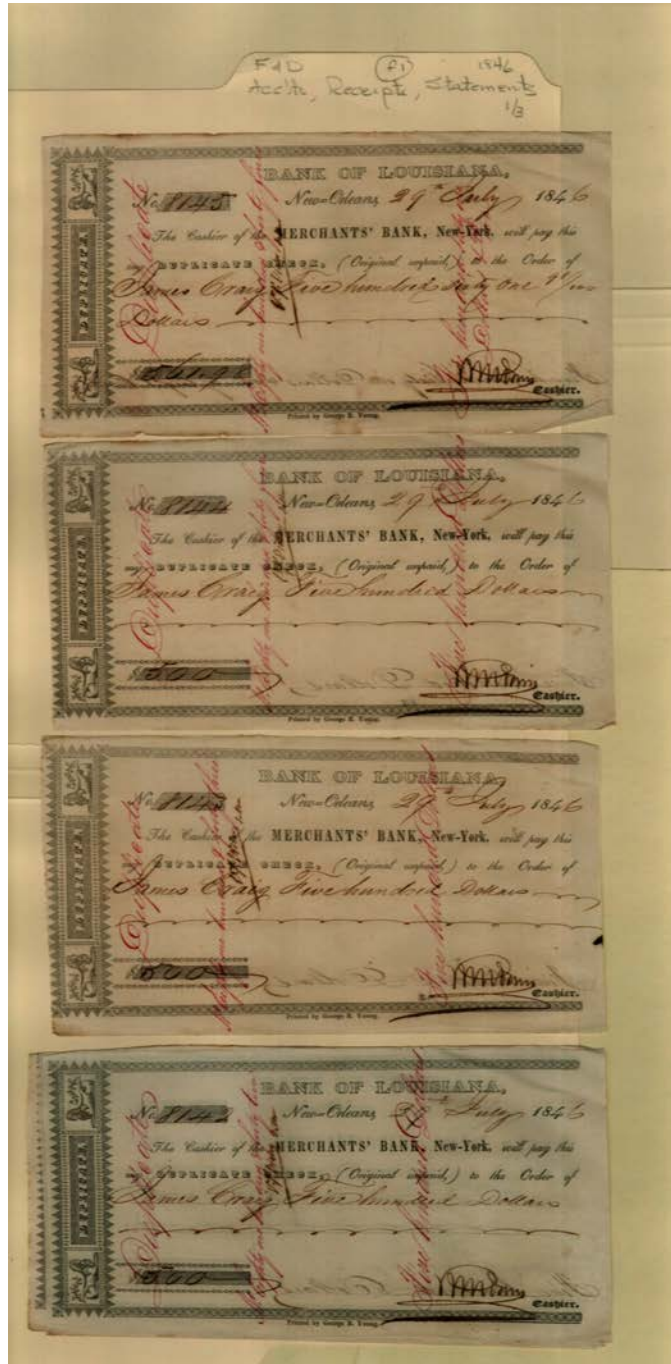 F&D (f1) 1846
Acc'ts, Receipts, Statements
1/3
BANK OF LOUISIANA,
No. 8145 New-Orleans, 29th July 1846
The Cashier of the MERCHANTS' BANK, New-York, will pay this
my DUPLICATE CHECK, (Original unpaid,) to the Order of
James Craig Five hundred sixty one 98/100
Dollars
$561.98
Cashier.
Printed by George E. Young.
DUPLICATE
Duplicate
BANK OF LOUISIANA,
No. 8144 New-Orleans, 29th July 1846
The Cashier of the MERCHANTS' BANK, New-York, will pay this
my DUPLICATE CHECK, (Original unpaid,) to the Order of
James Craig Five hundred Dollars
$500
Cashier.
Printed by George E. Young.
DUPLICATE
Duplicate
Five hundred Dollars
BANK OF LOUISIANA,
No. 8143 New-Orleans, 29th July 1846
The Cashier of the MERCHANTS' BANK, New-York, will pay this
my DUPLICATE CHECK, (Original unpaid,) to the Order of
James Craig Five hundred Dollars
$500
Cashier.
Printed by George E. Young.
DUPLICATE
Duplicate
Five hundred Dollars
BANK OF LOUISIANA,
No. 8142 New-Orleans, 29th July 1846
The Cashier of the MERCHANTS' BANK, New-York, will pay this
my DUPLICATE CHECK, (Original unpaid,) to the Order of
James Craig Five hundred Dollars
$500
Cashier.
Printed by George E. Young.
DUPLICATE
Duplicate
Five hundred Dollars